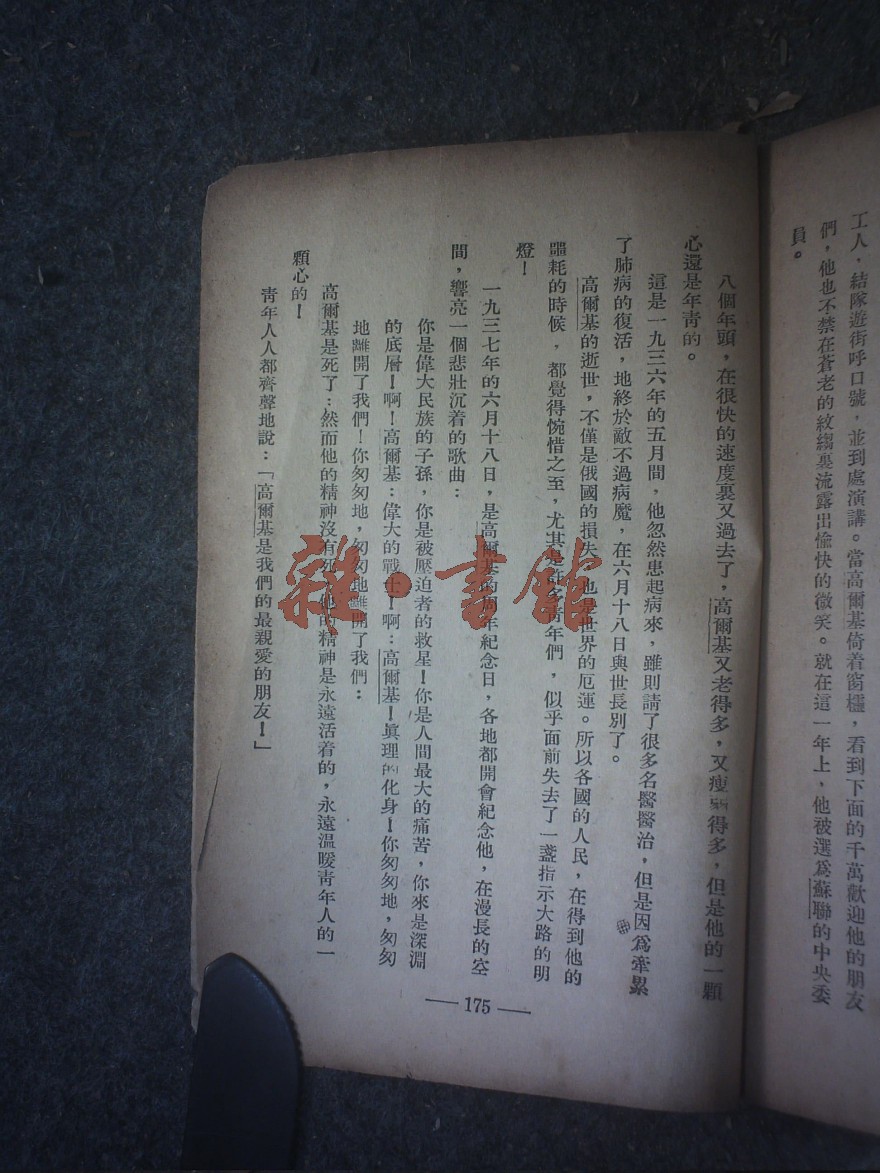 工人，結隊遊街呼口號，並到處演講。當高爾基倚着窗櫺，看到下面的千萬歡迎他的朋友
們，他也不禁在蒼老的紋縐裏流露出愉快的微笑。就在這一年上，他被選爲蘇聯的中央委
員。
八個年頭，在很快的速度裏又過去了，高爾基又老得多，又瘦弱得多，但是他的一顆
心還是年青的。
這是一九三六年的五月間，他忽然患起病來，雖則請了很多名醫醫治，但是因爲牽累
了肺病的復活，地終於敵不過病魔，在六月十八日與世長別了。
高爾基的逝世，不僅是俄國的損失，也是世界的厄運。所以各國的人民，在得到他的
噩耗的時候，都覺得惋惜之至，尤其是許多青年們，似乎面前失去了一盞指示大路的明
燈！
一九三七年的六月十八日，是高爾基的周年紀念日，各地都開會紀念他，在漫長的空
間，響亮一個悲壯沉着的歌曲：
你是偉大民族的子孫，你是被壓迫者的救星！你是人間最大的痛苦，你來是深淵
的底層！啊！高爾基：偉大的戰士！啊：高爾基！眞理的化身！你匆匆地，匆匆
地離開了我們！你匆匆地，匆匆地離開了我們：
高爾基是死了：然而他的精神沒有死，他的精神是永遠活着的，永遠温暖青年人的一
顆心的！
青年人人都齊聲地說：「高爾基是我們的最親愛的朋友！」
— 175 —
雜·書館